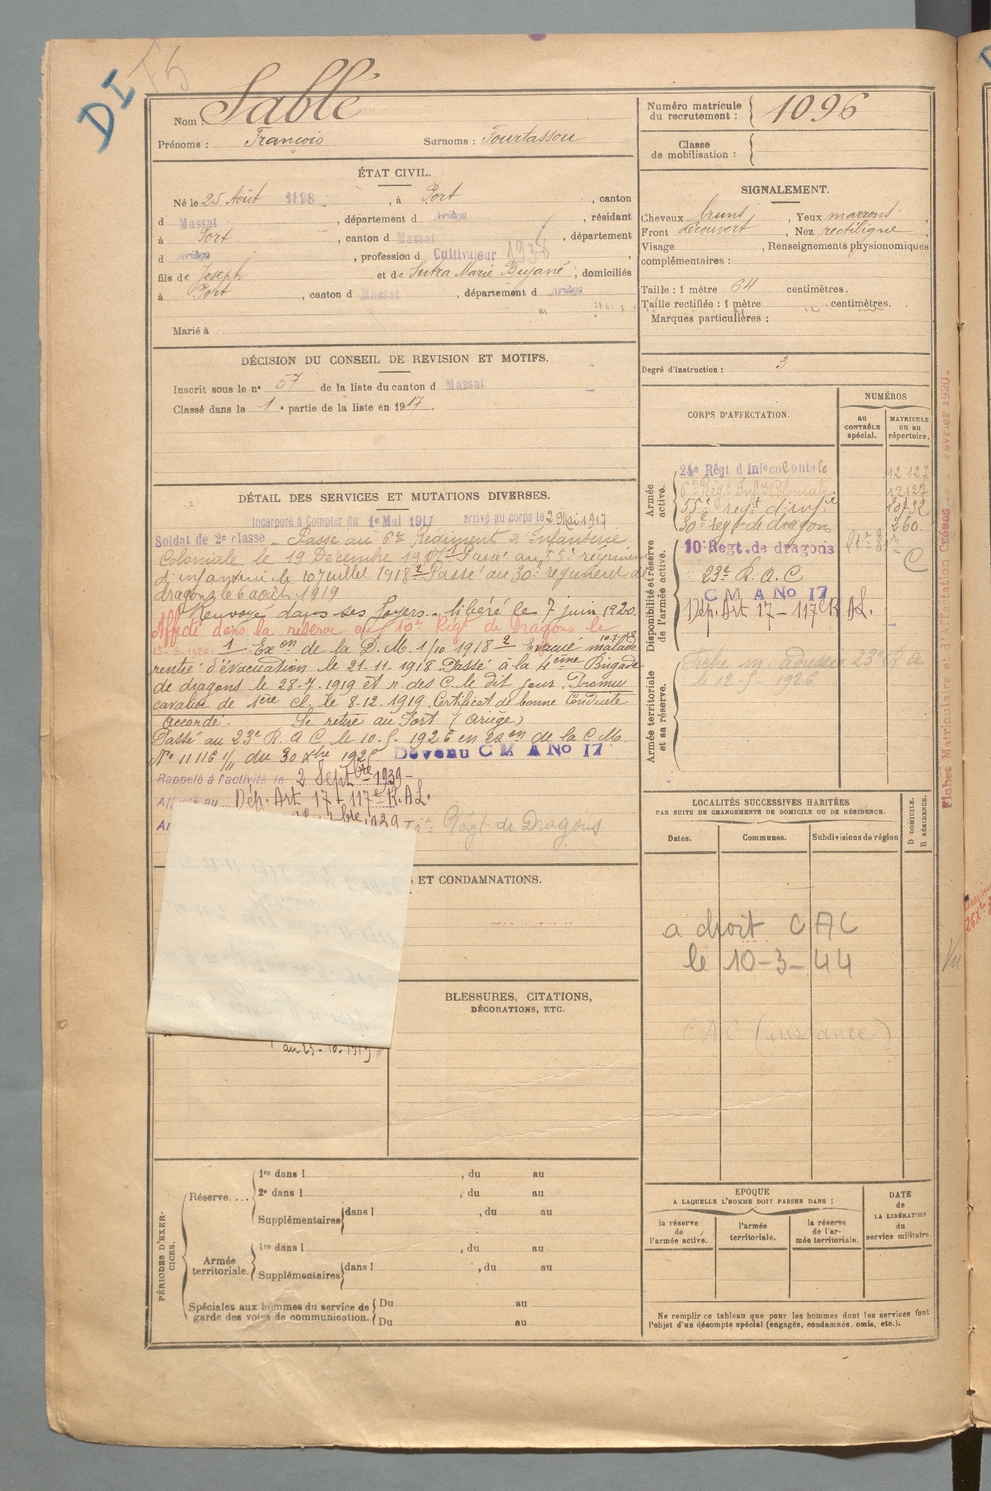 DI
15
Nom : Sablé
Prénoms : François Surnoms : Fourtassou
Numéro matricule du recrutement : 1096
Classe de mobilisation :
ÉTAT CIVIL.
Né le 25 Août 1898, à Port, canton
d Massat, département d Ariège, résidant
à Port, canton d Massat, département
d Ariège, profession d Cultivateur 1938
fils de Joseph et de Sutra Marie, domiciliés
à Port, canton d Massat, département d Ariège
Marié à
SIGNALEMENT.
Cheveux bruns, Yeux marrons,
Front découvert, Nez rectiligne,
Visage, Renseignements physionomiques
complémentaires :
Taille : 1 mètre 64 centimètres.
Taille rectifiée : 1 mètre centimètres.
Marques particulières :
Degré d'instruction : 3
DÉCISION DU CONSEIL DE REVISION ET MOTIFS.
Inscrit sous le n° 57 de la liste du canton d Massat
Classé dans la 1e partie de la liste en 1917.
DÉTAIL DES SERVICES ET MUTATIONS DIVERSES.
Incorporé à Compter du 1er Mai 1917 arrivé au corps le 2 Mai 1917
Soldat de 2e classe _ Passé au 6e Régiment d'Infanterie
Coloniale le 19 Décembre 1917 1 Passé au 55e régiment
d'infanterie le 10 juillet 1918 2 Passé au 30e régiment de
dragons le 6 août 1919
Renvoyé dans ses foyers _ libéré le 7 juin 1920.
Affecté dans la réserve au 10e Régt de Dragons le
1 Exon de la D.M. 1/10 1918 2 Evacué malade
rentré d'évacuation le 21-11-1918. Passé à la 4ème Brigade
de dragons le 28-7-1919 et r. des C. le dit jour. Promu
cavalier de 1ère cl. le 8-12-1919. Certificat de bonne Conduite
accordé. Se retire au Port (Ariège)
Passé au 23e R.A.C. le 10-5-1926 en exon de la C.M.
N° 11116 1/11 du 30 Xbre 1925 Devenu C M A No 17
Rappelé à l'activité le 2 Septbre 1939 -
Dép. Art 17 - 117e R.A.L.
Régt de Dragons
ET CONDAMNATIONS.
BLESSURES, CITATIONS,
DÉCORATIONS, ETC.
au 25-10-1919
CORPS D'AFFECTATION.
NUMÉROS
au CONTRÔLE spécial.
MATRICULE ou au répertoire.
Armée active.
24e Régt d Infie coloniale 12 127
6e Régt Infie Coloniale 12127
55e régt d'infie 20732
30e régt de dragons 360.
Disponibilité et réserve de l'armée active.
10e Regt. de dragons
C
23e R.A.C
C M A No 17
Dép. Art 17 - 117e R.A.L.
Armée territoriale et sa réserve.
Fiche m. adressée 23e R A
le 12-5-1926
Fiches Matriculaire et d'Affectation Créées Février 1920.
LOCALITÉS SUCCESSIVES HABITÉES
PAR SUITE DE CHANGEMENTS DE DOMICILE OU DE RÉSIDENCE.
Dates. Communes. Subdivisions de région
D DOMICILE.
R RÉSIDENCE.
a droit CAC
le 10-3-44
CAC (instance)
Vu
PÉRIODES D'EXERCICES.
Réserve....
1re dans l , du au
2e dans l , du au
Supplémentaires dans l , du au
Armée territoriale.
1re dans l , du au
Supplémentaires dans l , du au
Spéciales aux hommes du service de
garde des voies de communication.
Du au
Du au
EPOQUE
A LAQUELLE L'HOMME DOIT PASSER DANS :
la réserve de l'armée active.
l'armée territoriale.
la réserve de l'armée territoriale.
DATE de LA LIBÉRATION du service militaire.
Ne remplir ce tableau que pour les hommes dont les services font
l'objet d'un décompte spécial (engagés, condamnés, omis, etc.).